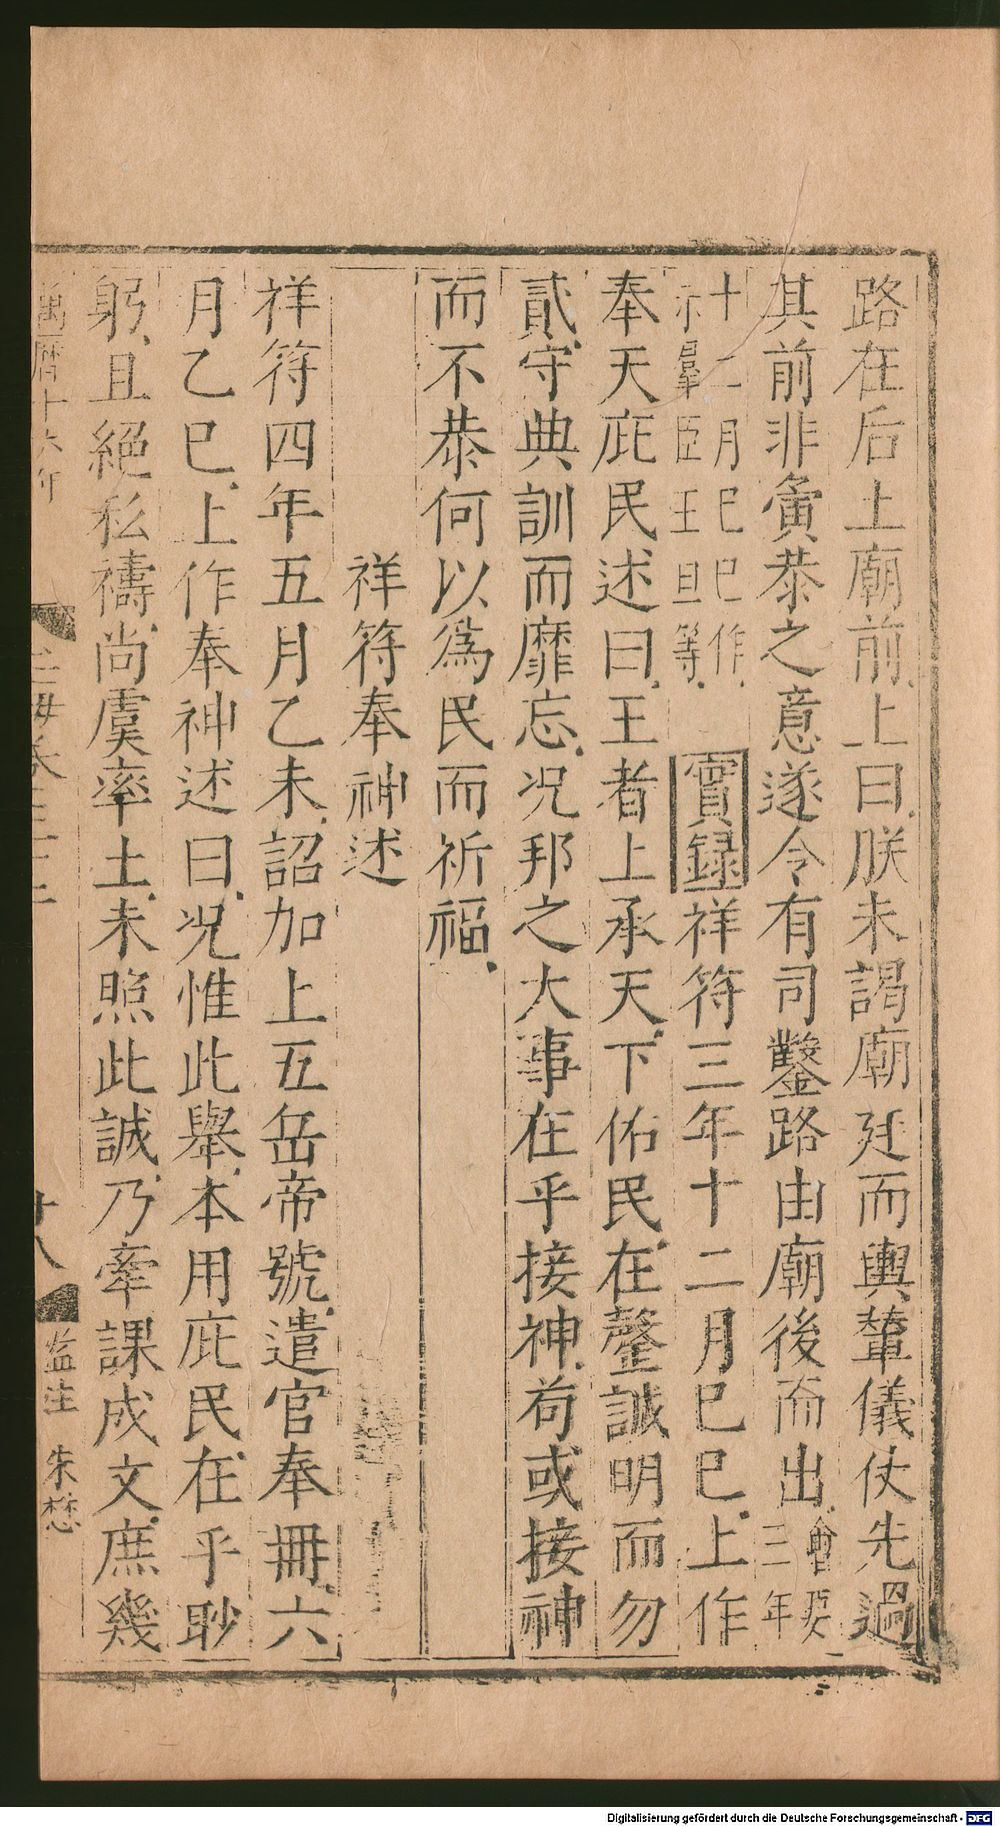 路在后土廟前上曰朕未謁廟廷而輿輦儀仗先過
其前非夤恭之意遂令有司鑿路由廟後而出會要三年
十二月巳巳作示羣臣王旦等實録祥符三年十二月巳巳上作
奉天庇民述曰王者上承天下佑民在罄誠明而勿
貳守典訓而靡忘况邦之大事在乎接神苟或接神
而不恭何以爲民而祈福
祥符奉神述
祥符四年五月乙未詔加上五岳帝號遣官奉冊六
月乙巳上作奉神述曰况惟此舉本用庇民在乎眇
躬且絕私禱尚虞率土未照此誠乃牽課成文庶幾
萬曆十六年
玉海卷三十二
廿八
監生 朱懋
Digitalisierung gefördert durch die Deutsche Forschungsgemeinschaft - DFG